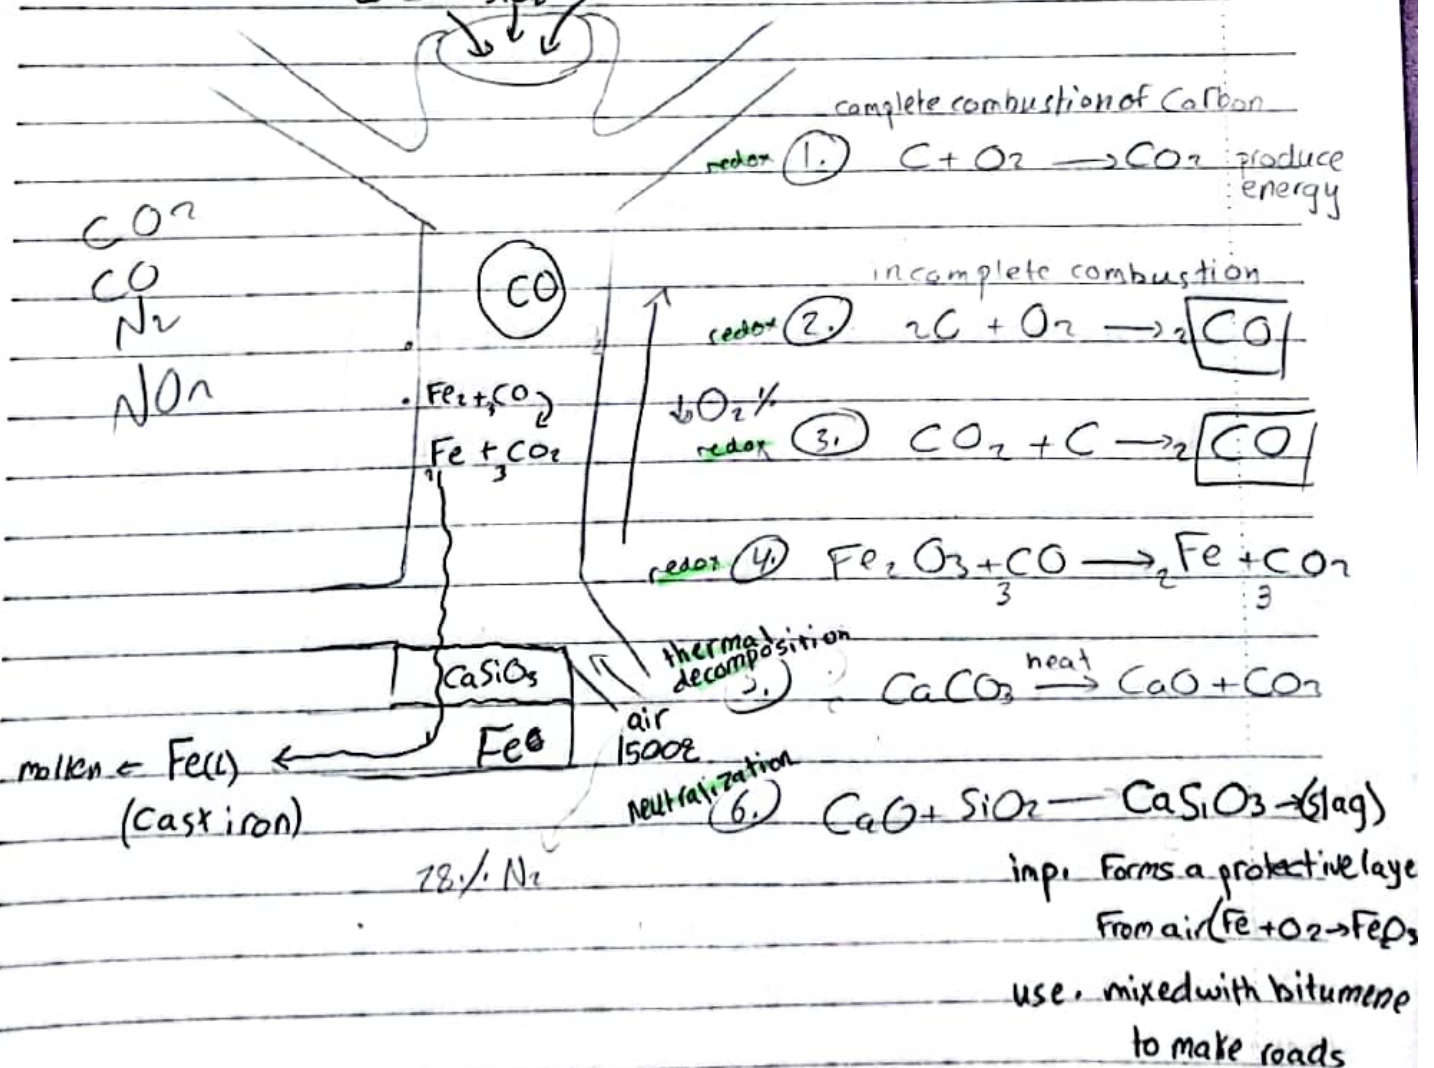 complete combustion of Carbon
redox 1. C + O2 → CO2 produce
energy
CO2
CO
N2
NOn
CO
incomplete combustion
redox 2. 2C + O2 → 2 CO
Fe2 + 3CO
Fe + CO2
2 3
↓O2%
redox 3. CO2 + C → 2 CO
redox 4. Fe2O3 + CO → 2Fe + CO2
3 3
thermal
decomposition
5. CaCO3 heat → CaO + CO2
CaSiO3
Fe
air
1500
molten ← Fe(L)
(Cast iron)
Neutralization
6. CaO + SiO2 — CaSiO3 → (slag)
78% N2
imp. Forms a protective laye
From air (Fe + O2 → FeO3
use. mixed with bitumene
to make roads